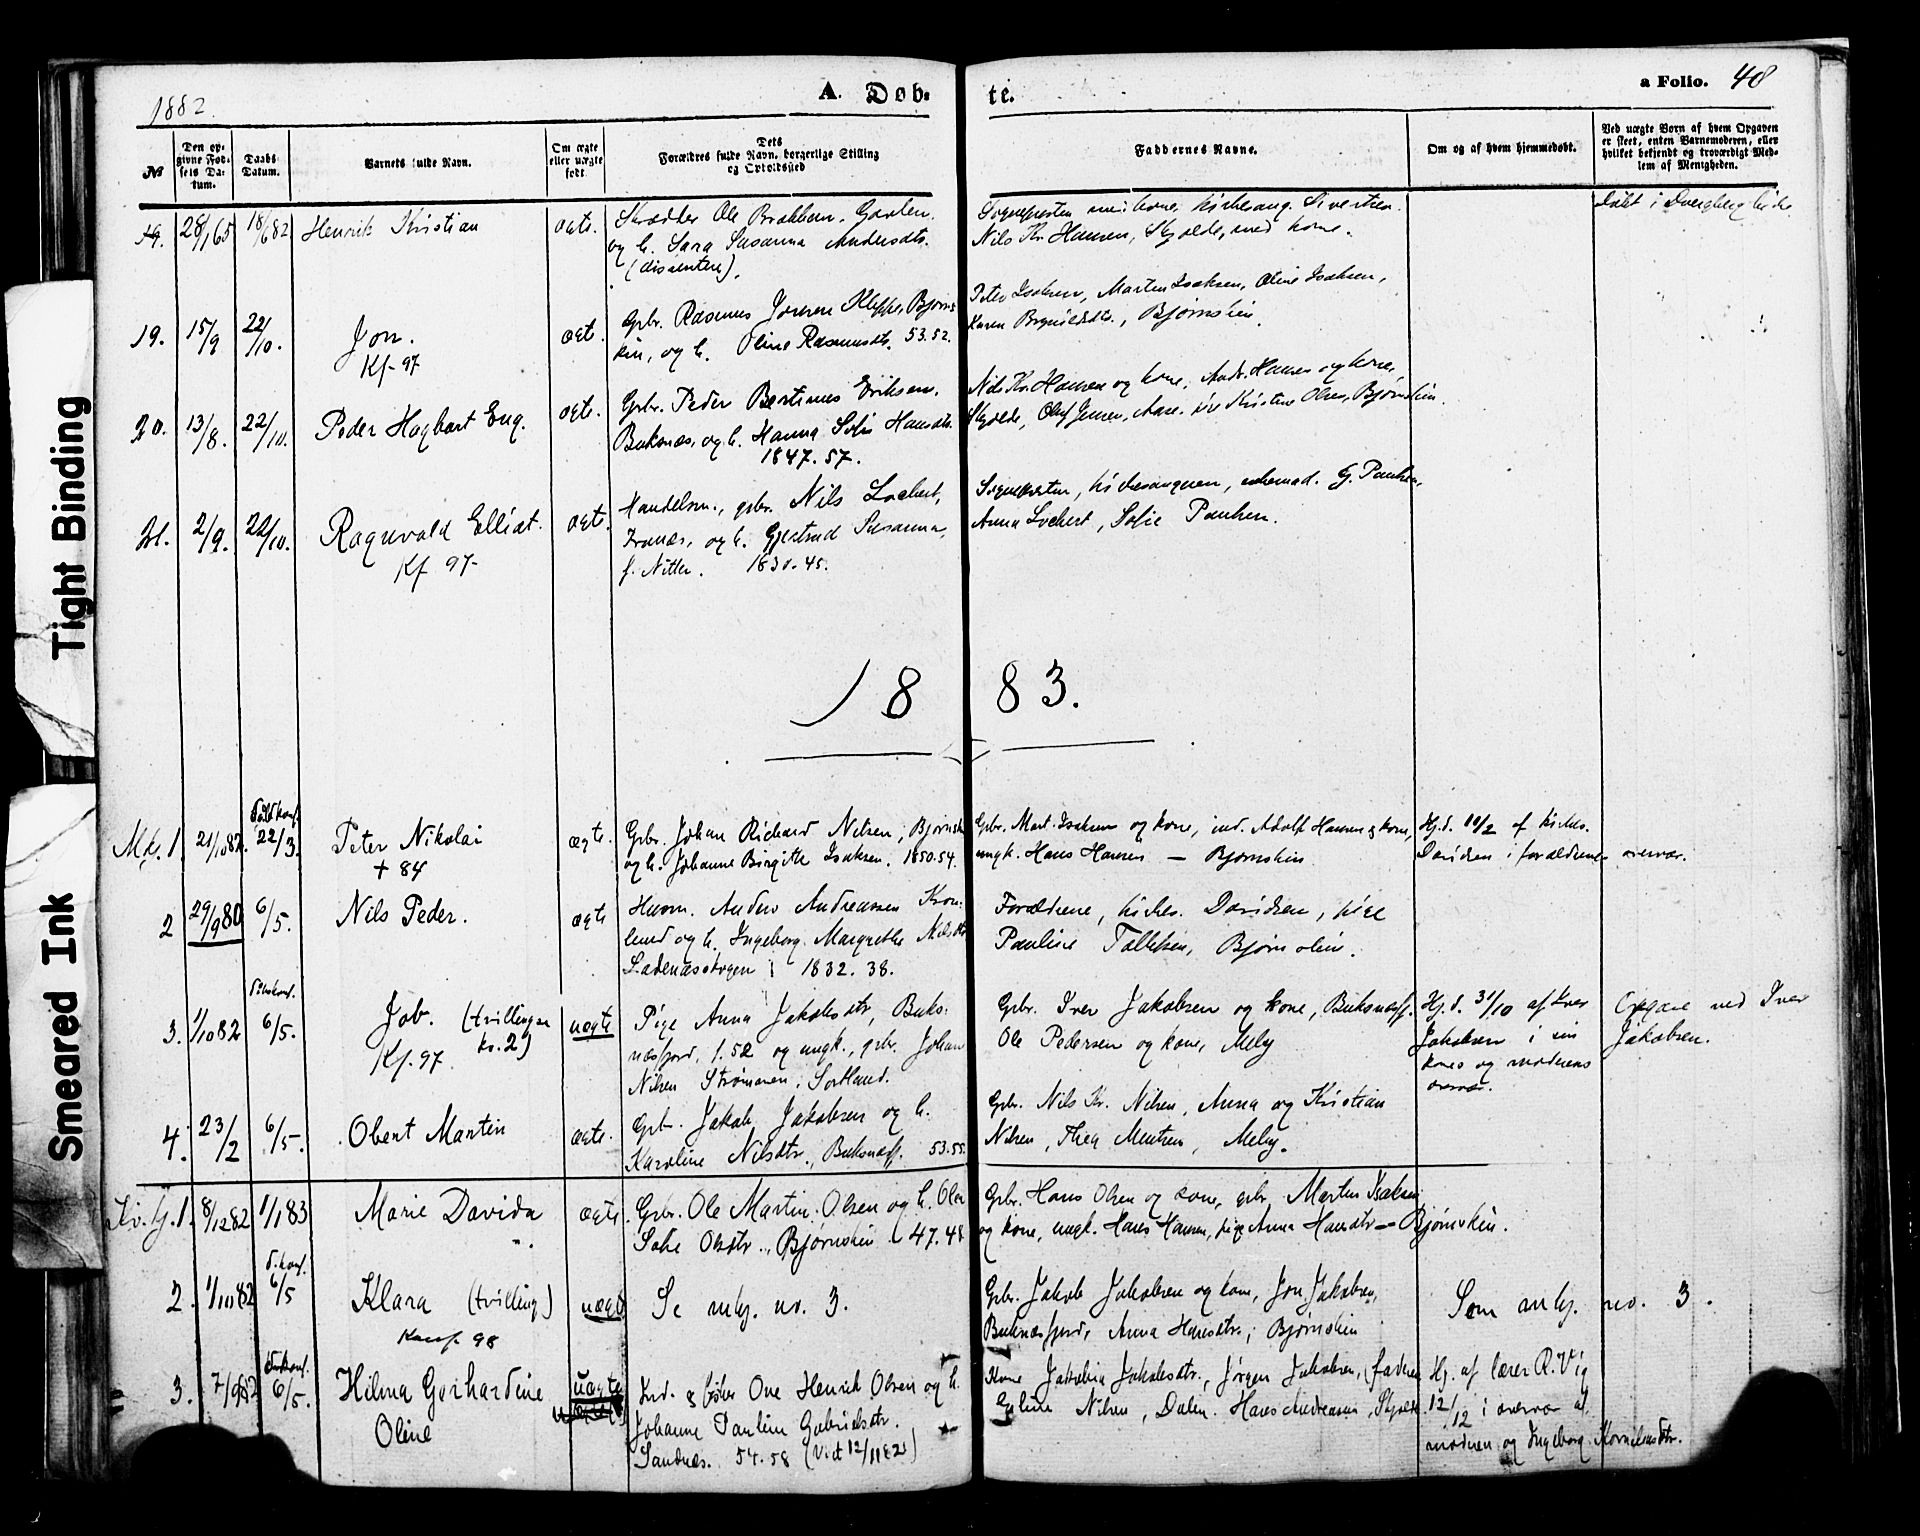 1882.
A. Døb-
te.
a Folio. 48
No
Den op-
givne Fød-
sels Da-
tum.
Daabs
Datum.
Barnets fulde Navn.
Om ægte
eller uægte
født.
Dets
Forældres fulde Navn, borgerlige Stilling
og Opholdssted
Faddernes Navne.
Om og af hvem hjemmedøbt.
Ved uægte Børn af hvem Opgaven
er skeet, enten Barnemoderen, eller
hvilket bekjendt og troværdigt Med-
lem af Menigheden.
19. 28/1 65 18/6 82 Henrik Kristian ægte.
Skrædder Ole Brokken. Gaarden.
og h. Sara Susanna Andersdtr.
(dissentere).
Sognepresten med kone, kirkesang. Sivertsen.
Nils Kr. Hansen, Skjolde, med kone.
Døbt i Dverberg kirke
19. 15/9 22/10. Jon. ægte.
Kf. 97
Gbr. Rasmus Jensen Kleppe, Bjørns-
kin, og h. Oline Rasmusdtr. 53.52.
Peter Isaksen, Martin Isaksen, Oline Isaksen,
Karen Brynildsdtr., Bjørnskin.
20. 13/8. 22/10. Peder Hagbart Eng. ægte.
Gbr. Peder Bertinus Eriksen.
Buknæs, og h. Hanna Sofie Hansdtr.
1847. 57.
Nils Kr. Hansen og kone, Andr. Hansen og kone,
Skjolde, Oluf Jensen, Aase. pige Kristine Olsen, Bjørnskin.
21. 2/9. 22/10. Ragnvald Elliat. ægte.
Kf. 97-
Handelsm., gbr. Nils Lochert,
og h. Gjertrud Susanna,
f. Nitter. 1830. 45.
Sognepresten, kirkesangeren, enkemad. G. Paulsen,
Anna Lochert, Sofie Paulsen.
1883.
Mk. 1. 21/10 82. Døbt konf. 22/3. Peter Nikolai ægte.
+ 84
Gbr. Johan Richard Nilsen, Bjørnskin
og h. Johanne Birgitte Isaksen. 1850.54.
Gbr. Mart. Isaksen og kone, ind. Adolf Hansen og kone,
ungk. Hans Hansen — Bjørnskin.
Hj.d. 11/2 af kirkes.
Davidsen i forældrenes overvær.
2 29/9 80 6/5. Nils Peder. ægte
Husm. Anders Andreassen Kron-
lund og h. Ingeborg Margrethe Nilsdtr
Ladenæsskogen 1832. 38.
Forældrene, kirkes. Davidsen, pige
Pauline Tollefsen, Bjørnskin.
3. 1/10 82 Dåbskonf. 6/5. Job. (tvillinger uægte
kv. 2)
Kf. 97.
Pige Anna Jakobsdtr, Buks-
næsfjord, f. 52 og ungk., gbr. Johan
Nilsen Strømmen, Sortland.
Gbr. Iver Jakobsen og kone, Buksnæsfj.
Ole Pedersen og kone, Melø
Hj.d. 31/10 af Iver
Jakobsen i sin
kones og moderens
overvær.
Opgave ved Iver
Jakobsen.
4. 23/2 6/5. Obert Martin ægte.
Gbr. Jakob Jakobsen og h.
Karoline Nilsdtr., Buksnæsfj. 53.55.
Gbr. Nils Kr. Nilsen, Anna og Kristian
Nilsen, Thea Mentsen, Melø.
Kv. kj. 1. 8/12 82 1/1 83 Marie Davida ægte.
Gbr. Ole Martin Olsen og h. Olea
Sofie Olsdtr., Bjørnskin 47.48
Gbr. Hans Olsen og kone, gbr. Martin Isaksen
og kone, ungk. Hans Hansen, pige Anna Hansdtr — Bjørnskin.
2. 1/10 82 d. konf. 6/5 Klara (tvilling) uægte
Konf. 98
Se mkj. no. 3.
Gbr. Jakob Jakobsen og kone, Jon Jakobsen,
Buknæsfjord, Anna Hansdtr., Bjørnskin
Som mkj. no. 3.
3. 7/9 82 6/5. Hilma Gerhardine uægte
Oline
Ind. og fisker Ove Henrik Olsen og h.
Johanne Pauline Gabrielsdtr.
Sandnæs. 54.58 (Viet 12/11 82)
Kone Jakobina Jakobsdtr., Jørgen Jakobsen, faderen
Nilsen, Dalen. Hans Andreasen, Skjolde
Hj. af lærer R. Vig
12/12 i overvær af
moderen og Ingeborg Kornelsdtr.
Tight Binding
Smeared Ink